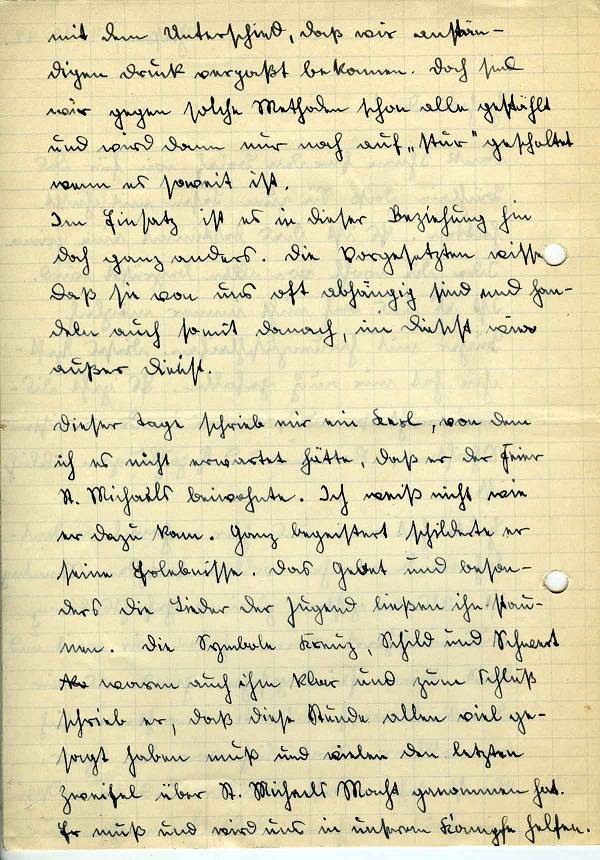 mit dem Unterschied, daß wir anstän-
digen Druck verpaßt bekamen. Doch sind
wir gegen solche Methoden schon alle gestählt
und wird dann nur noch auf „stur" geschaltet
wenn es soweit ist.
Im Einsatz ist es in dieser Beziehung hin
doch ganz anders. Die Vorgesetzten wissen
daß sie von uns oft abhängig sind und han-
deln auch somit danach, im Dienst wie
außer Dienst.
Dieser Tage schrieb mir ein Kerl, von dem
ich es nicht erwartet hätte, daß er der Feier
St. Michaels beiwohnte. Ich weiß nicht wie
er dazu kam. Ganz begeistert schilderte er
seine Erlebnisse. Das Gebet und beson-
ders die Lieder der Jugend ließen ihn stau-
nen. Die Symbole Kreuz, Schild und Schwert
waren auch ihm klar und zum Schluß
schrieb er, daß diese Stunde allen viel ge-
sagt haben muß und vielen den letzten
Zweifel über St. Michaels Macht genommen hat.
Er muß und wird uns in unserem Kampfe helfen.